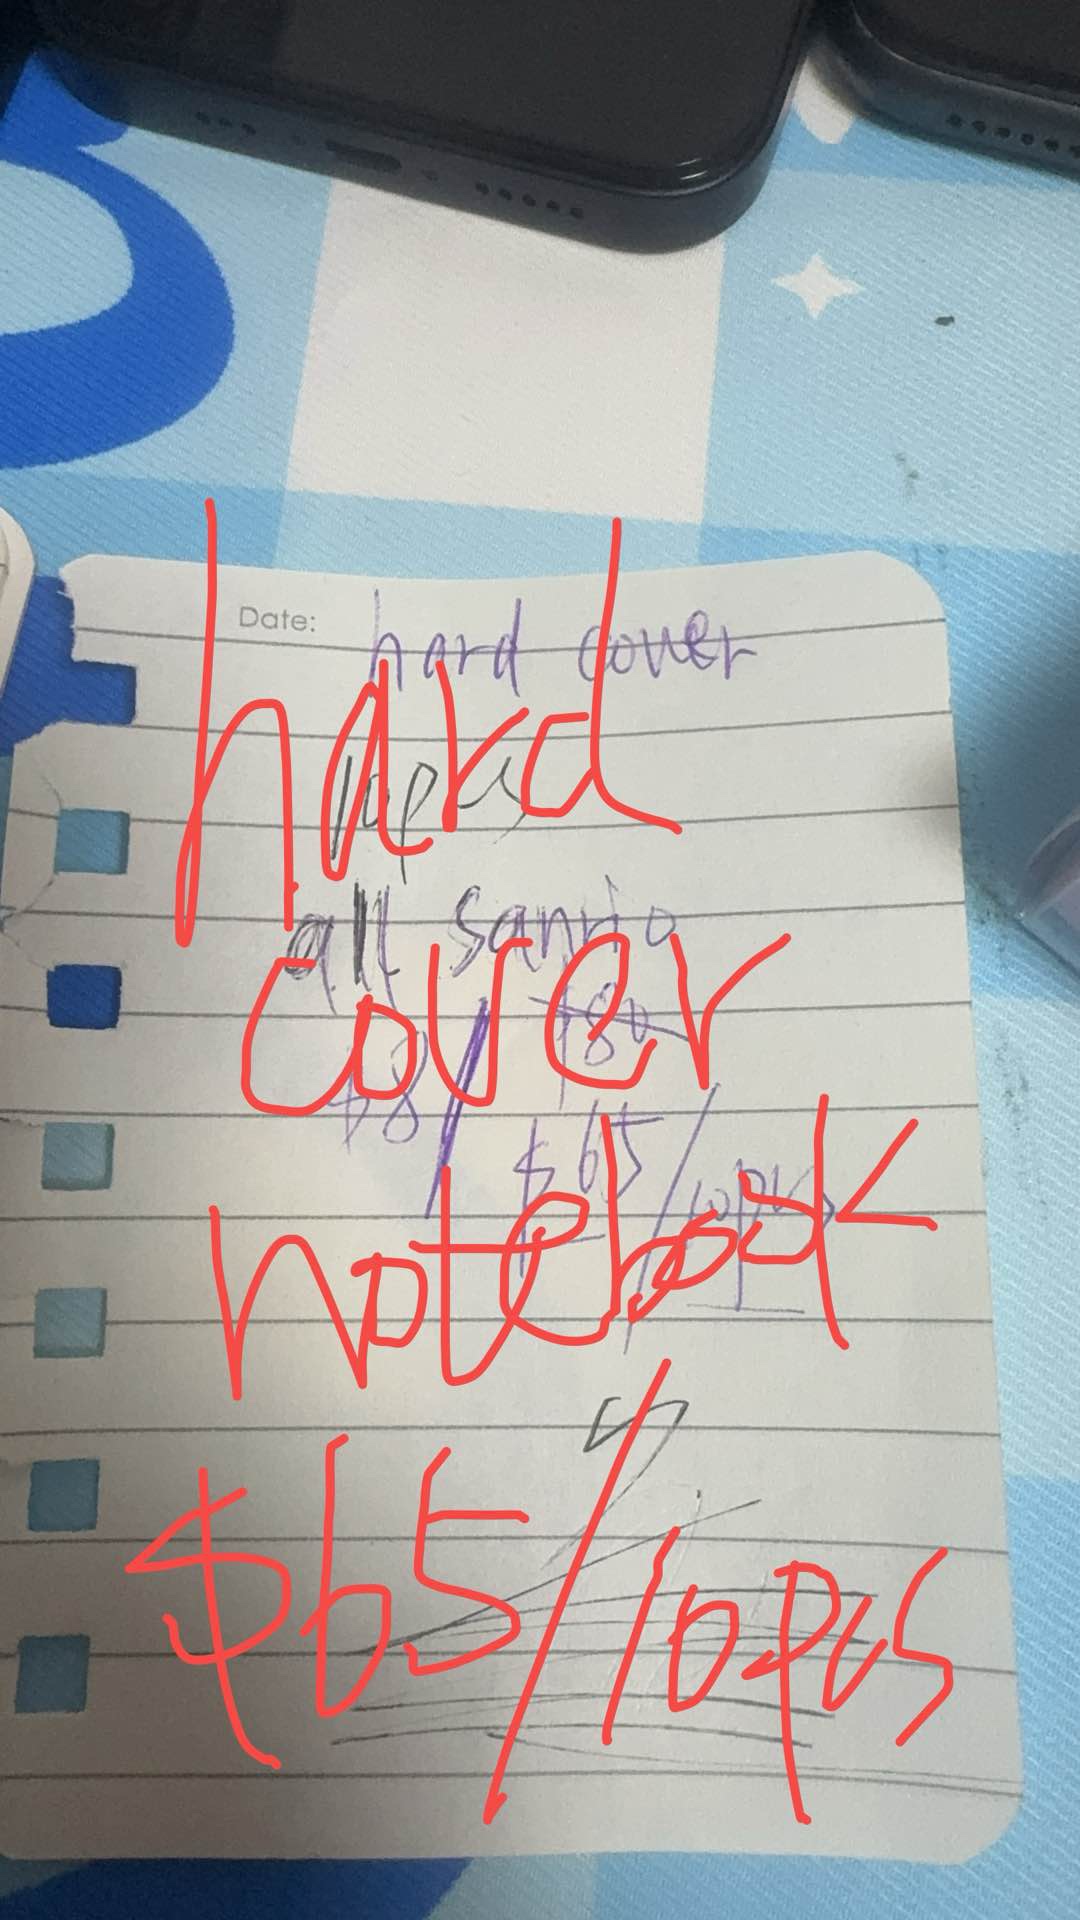 Date: hard cover
10pcs
all sanrio
$8/ $80
$65/10pcs
hard
cover
notebook
$65/10pcs